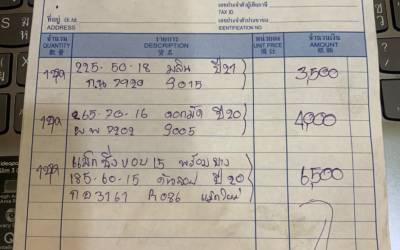 เลขประจำตัวผู้เสียภาษี
TAX ID.
ที่อยู่
ADDRESS
เลขประจำตัวประชาชน
IDENTIFICATION NO.
จำนวน รายการ หน่วยละ จำนวนเงิน
QUANTITY DESCRIPTION UNIT PRICE AMOUNT
數量 貨名 價 銀額
1ชุด 225-50-18 ปี 21 3,500
7920 9015
1ชุด 265-70-16 ปี 20 4,000
7202 9005
1ชุด แม็กซิ่งขอบ 15 พร้อมยาง 6,500
185-60-15 ปี 20
3161 R086 แม็กใหม่